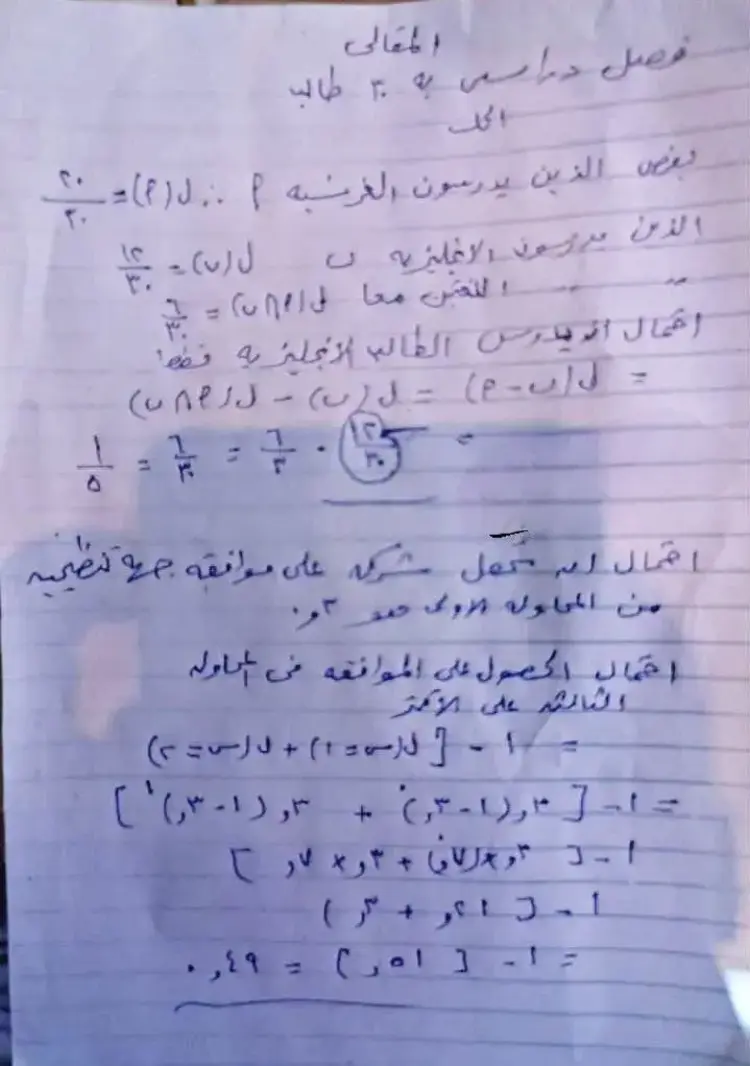 المقالى
فصل دراسى به ٣٠ طالب
الحل
بفرض الذين يدرسون الفرنسيه P ∴ ل(P) = ٢٠/٣٠
الذين يدرسون الانجليزيه ن ل(ن) = ١٢/٣٠
" " اللغتين معا ل(P∩ن) = ٦/٣٠
احتمال ان يدرس الطالب الانجليزيه فقط
= ل(ن - P) = ل(ن) - ل(P∩ن)
= ١٢/٣٠ - ٦/٣٠ = ٦/٣٠ = ١/٥
احتمال ان تحصل شركه على موافقه جهه تنظيميه
من المحاوله الاولى هو ٠,٣
احتمال الحصول على الموافقه فى المحاوله
الثالثه على الاكثر
= ١ - [ ل(س=١) + ل(س=٢)
= ١ - [ ,٣ (١-,٣)٠ + ,٣ (١-,٣)١ ]
١ - [ ,٣ × (,٧)٠ + ,٣ × ,٧ ]
١ - [ ,٢١ + ,٣ )
= ١ - [ ,٥١ ) = ٠,٤٩